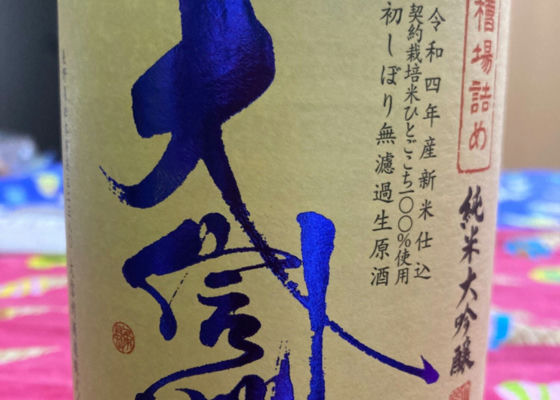 槽場詰め
純米大吟醸
令和四年産新米仕込
契約栽培米ひとごこち一〇〇%使用
初しぼり無濾過生原酒
大信州